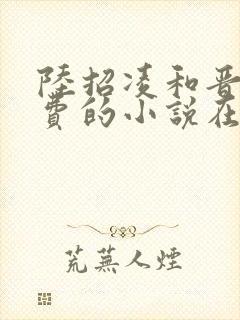 陸招凌和晋
費的小說在
荒蕪人煙